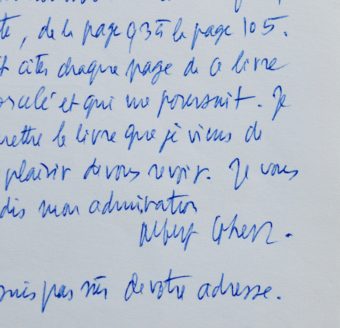 te, de la page 93 à la page 105.
t citer chaque page de ce livre
orcelé et qui me poursuit. Je
mettre le livre que je viens de
plaisir de vous revoir. Je vous
dis mon admiration
Albert Cohen.
suis pas sûr de votre adresse.